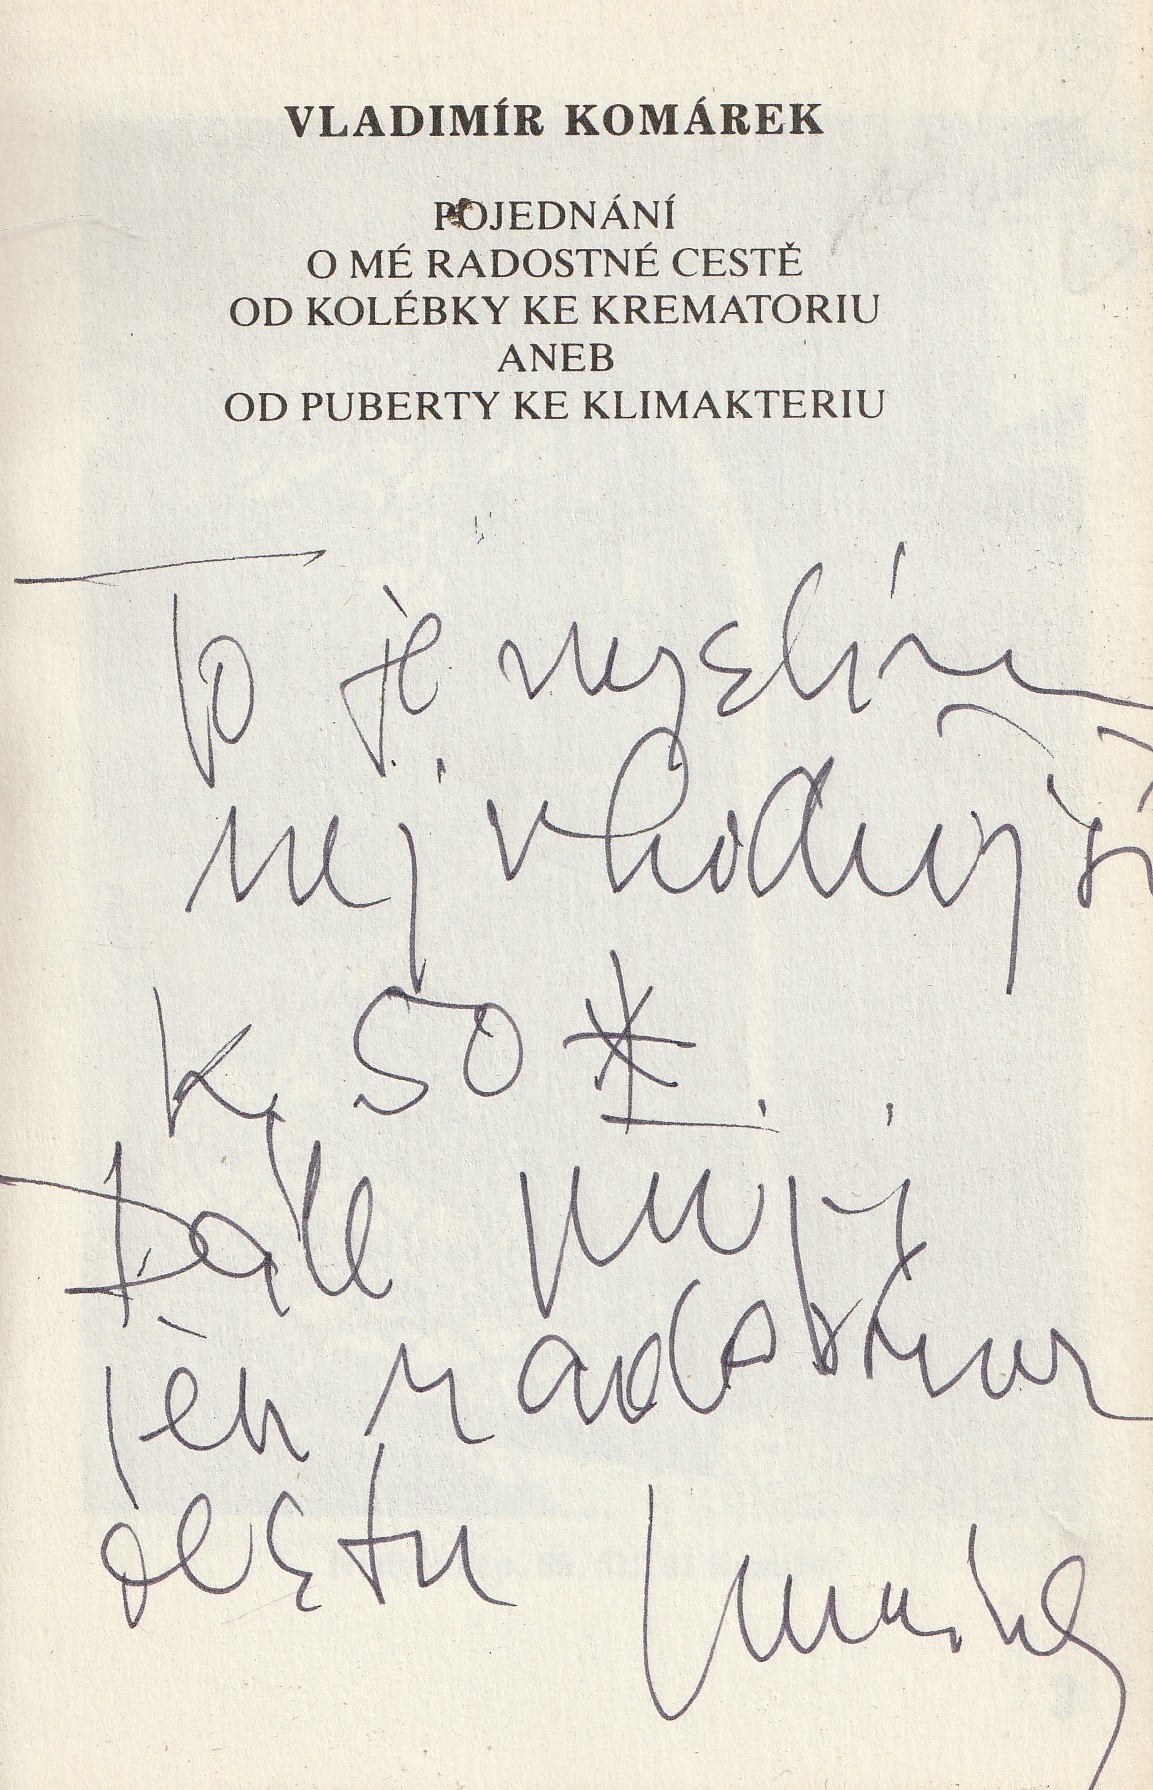 VLADIMÍR KOMÁREK
POJEDNÁNÍ
O MÉ RADOSTNÉ CESTĚ
OD KOLÉBKY KE KREMATORIU
ANEB
OD PUBERTY KE KLIMAKTERIU
To je myslím
nejvhodnější
K 50 *
Dále
jen radostnou
cestu